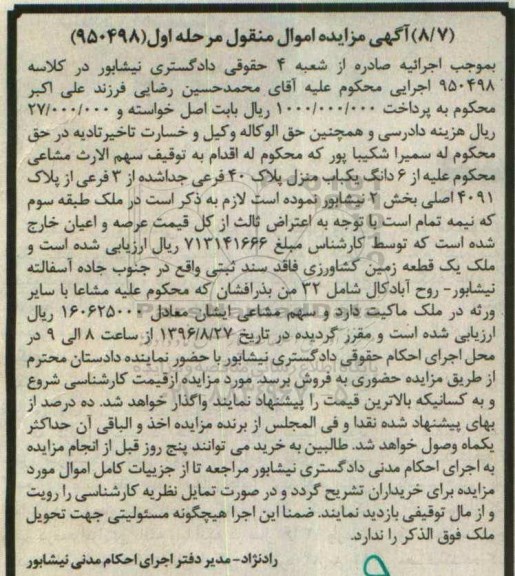 (۸/۷)آگهی مزایده اموال منقول مرحله اول(۹۵۰۴۹۸)
بموجب اجرائیه صادره از شعبه ۴ حقوقی دادگستری نیشابور در کلاسه
۹۵۰۴۹۸ اجرایی محکوم علیه آقای محمدحسین رضایی فرزند علی اکبر
محکوم به پرداخت ۱۰۰۰/۰۰۰/۰۰۰ ریال بابت اصل خواسته و ۲۷/۰۰۰/۰۰۰
ریال هزینه دادرسی و همچنین حق الوکاله وکیل و خسارت تاخیرتادیه در حق
محکوم له سمیرا شکیبا پور که محکوم له اقدام به توقیف سهم الارث مشاعی
محکوم علیه از ۶ دانگ یکباب منزل پلاک ۴۰ فرعی جداشده از ۳ فرعی از پلاک
۴۰۹۱ اصلی بخش ۲ نیشابور نموده است لازم به ذکر است در ملک طبقه سوم
که نیمه تمام است با توجه به اعتراض ثالث از کل قیمت عرصه و اعیان خارج
شده است که توسط کارشناس مبلغ ۷۱۳۱۴۱۶۶۶ ریال ارزیابی شده است و
ملک یک قطعه زمین کشاورزی فاقد سند ثبتی واقع در جنوب جاده آسفالته
نیشابور- روح آبادکال شامل ۳۲ من بذرافشان که محکوم علیه مشاعا با سایر
ورثه در ملک مالکیت دارد و سهم مشاعی ایشان معادل ۱۶۰۶۲۵۰۰۰ ریال
ارزیابی شده است و مقرر گردیده در تاریخ ۱۳۹۶/۸/۲۷ از ساعت ۸ الی ۹ در
محل اجرای احکام حقوقی دادگستری نیشابور با حضور نماینده دادستان محترم
از طریق مزایده حضوری به فروش برسد. مورد مزایده ازقیمت کارشناسی شروع
و به کسانیکه بالاترین قیمت را پیشنهاد نمایند واگذار خواهد شد. ده درصد از
بهای پیشنهاد شده نقدا و فی المجلس از برنده مزایده اخذ و الباقی آن حداکثر
یکماه وصول خواهد شد. طالبین به خرید می توانند پنج روز قبل از انجام مزایده
به اجرای احکام مدنی دادگستری نیشابور مراجعه تا از جزییات کامل اموال مورد
مزایده برای خریداران تشریح گردد و در صورت تمایل نظریه کارشناسی را رویت
و از مال توقیفی بازدید نمایند. ضمنا این اجرا هیچگونه مسئولیتی جهت تحویل
ملک فوق الذکر را ندارد.
رادنژاد- مدیر دفتر اجرای احکام مدنی نیشابور